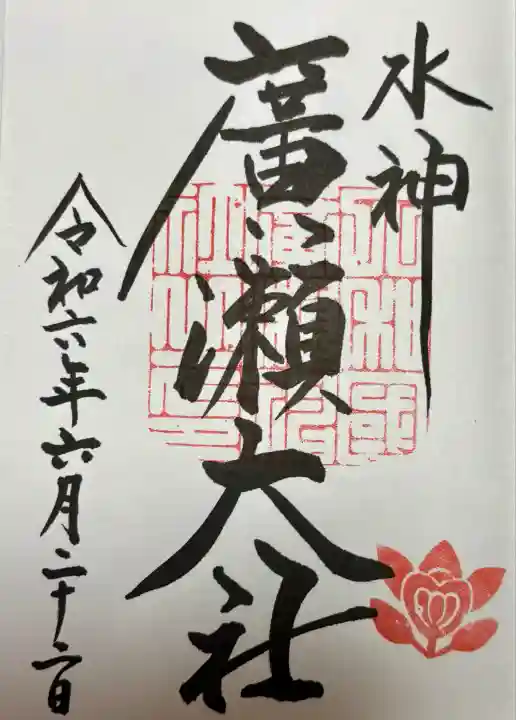 水神
廣瀬大社
令和六年六月二十六日